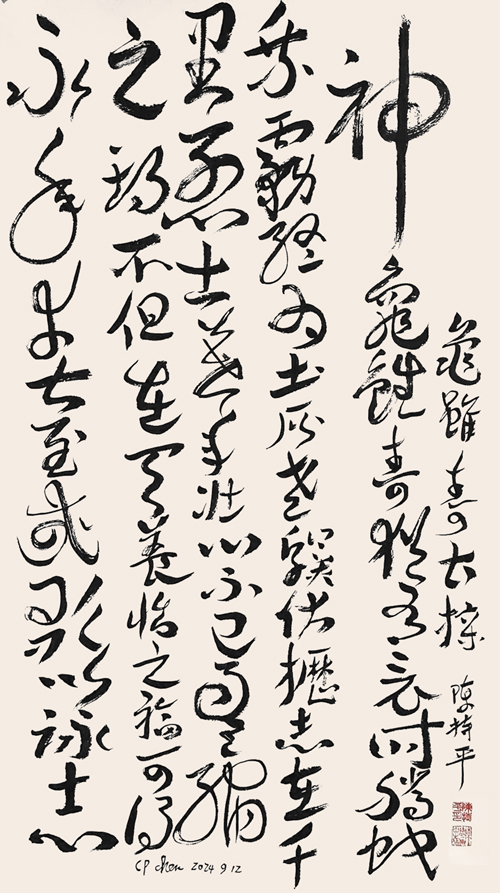 神龜雖壽猶有竟時騰蛇
乘霧終為土灰老驥伏櫪志在千
里烈士暮年壯心不已盈縮
之期不但在天養怡之福可得
永年幸甚至哉歌以詠志
龜雖壽 曹操 陳特平
CP Chen 2024 9 12